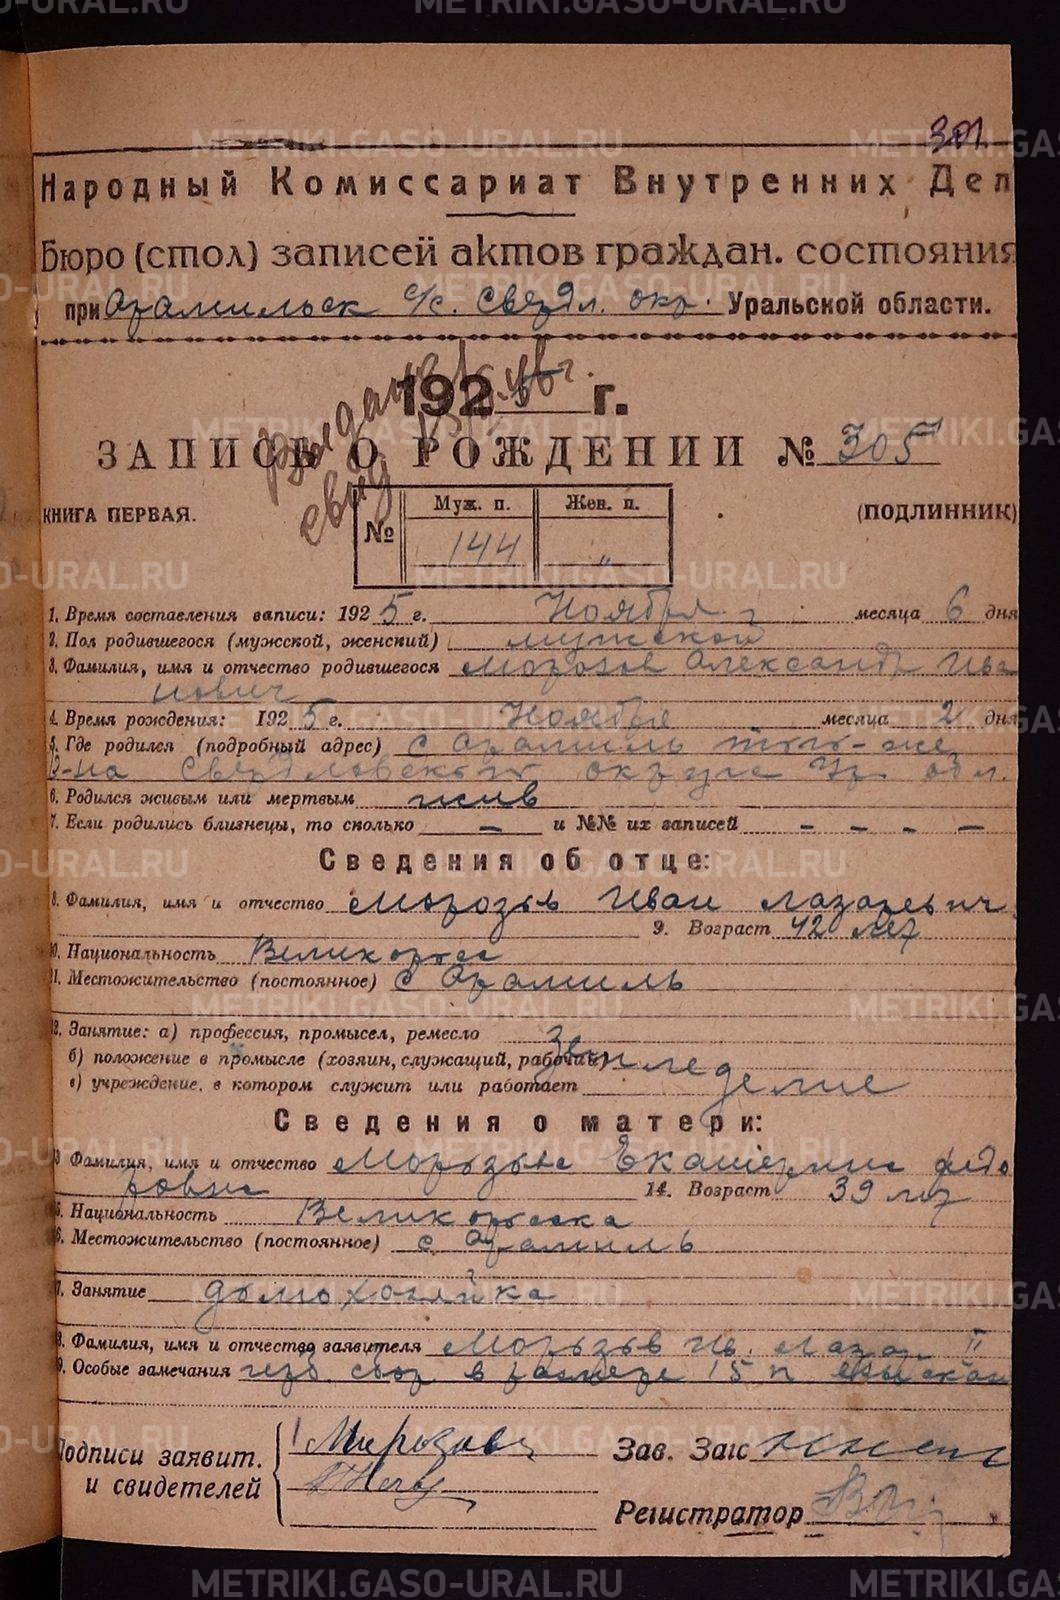 METRIKI.GASO-URAL.RU
301.
Народный Комиссариат Внутренних Дел
Бюро (стол) записей актов граждан. состояния
при Арамильск с/с. Свердл. окр. Уральской области.
выдано
1925 г.
свид
ЗАПИСЬ О РОЖДЕНИИ № 305
КНИГА ПЕРВАЯ.
№ Муж. п. Жен. п.
144 „
(ПОДЛИННИК)
1. Время составления записи: 1925 г. Ноября месяца 6 дня
2. Пол родившегося (мужской, женский) мужской
3. Фамилия, имя и отчество родившегося Морозов Александр Ива
нович
4. Время рождения: 1925 г. Ноября месяца 2 дня
5. Где родился (подробный адрес) с Арамиль того-же
р-на Свердловского округа Ур. обл.
6. Родился живым или мертвым жив
7. Если родились близнецы, то сколько – и №№ их записей – – – –
Сведения об отце:
8. Фамилия, имя и отчество Морозов Иван Лазаревич
9. Возраст 42 лет
10. Национальность Великорос
11. Местожительство (постоянное) с Арамиль
12. Занятие: а) профессия, промысел, ремесло
б) положение в промысле (хозяин, служащий, рабочий) Земледелие
в) учреждение, в котором служит или работает
Сведения о матери:
13 Фамилия, имя и отчество Морозова Екатерина Федо
ровна
14. Возраст 39 лет
15. Национальность Великоросска
16. Местожительство (постоянное) с Арамиль
17. Занятие домохозяйка
18. Фамилия, имя и отчество заявителя Морозов Ив. Лазар
19. Особые замечания герб. сбор в размере 15 к взыскан
Подписи заявит.
и свидетелей
Морозов
Зав. Загс
Регистратор